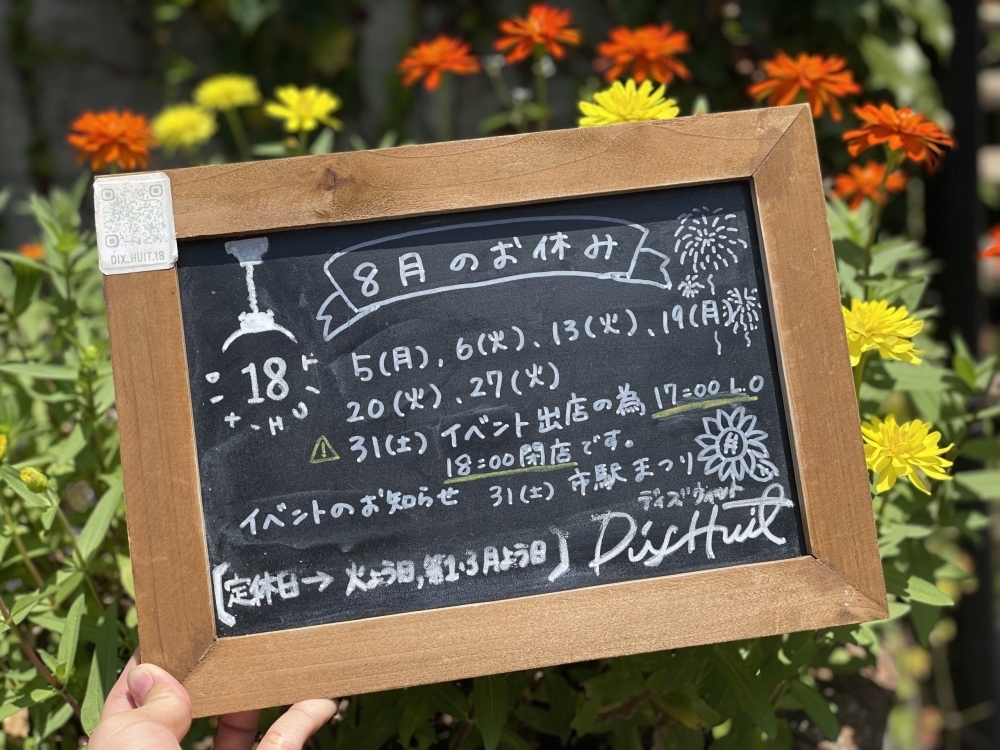 DIX_HUIT.18
8月のお休み
18
DIX HUIT
5(月)、6(火)、13(火)、19(月)
20(火)、27(火)
⚠ 31(土) イベント出店の為 17:00 L.O
18:00 閉店です。
イベントのお知らせ 31(土) 市駅まつり
ディズ ウィット
Dix Huit
[定休日→ 火よう日,第1・3月よう日]